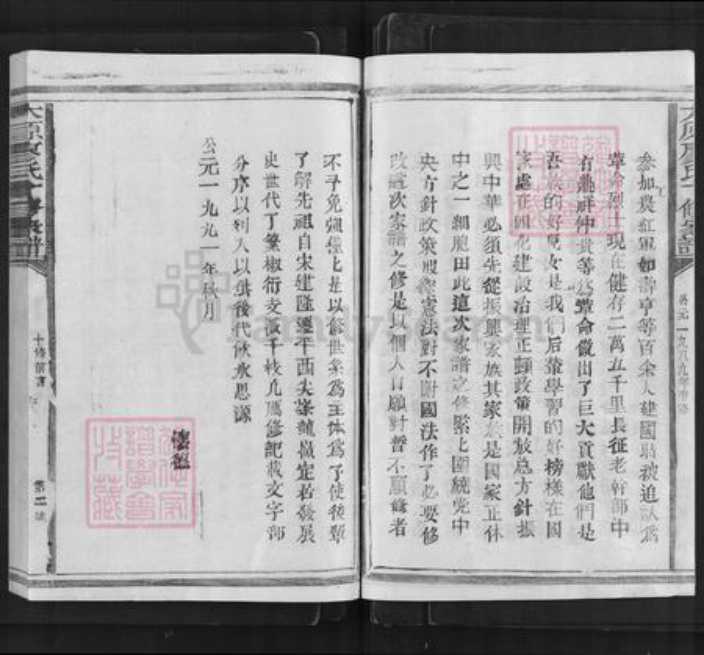 參加農紅軍如壽亨等百余人建國后被追認爲
革命烈士現在健存二萬五千里長征老幹部中
有鼎祥仲貴等爲革命做出了巨大貢獻他們是
吾族的好兒女是我們后輩學習的好榜樣在國
家處正四化建設治理正頓政策開放總方針振
興中華必須先從振興家族其家族是國家正体
中之一細胞田此這次家譜之修緊上團統党中
央方針政策服從憲法對不附國法作了必要修
改這次家譜之修是以個人自願對暫不願者
不予免強僅上是以修世系爲主体爲了使後輩
了解先祖自宋建隆遷平西尖峯龍嶺定若發展
史世代丁繁椒衍支派千枝凢屬修記載文字部
分亦以利人以供後代飲水思源
公元一九九一年秋月
十修前言
第二號
公元一九八九年
FamilySearch